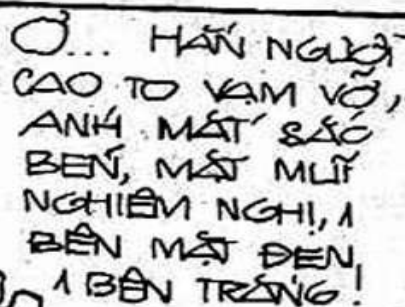 Ơ... HẮN NGƯỜI
CAO TO VẠM VỠ,
ÁNH MẮT SẮC
BÉN, MẶT MŨI
NGHIÊM NGHỊ, 1
BÊN MẶT ĐEN,
1 BÊN TRẮNG!